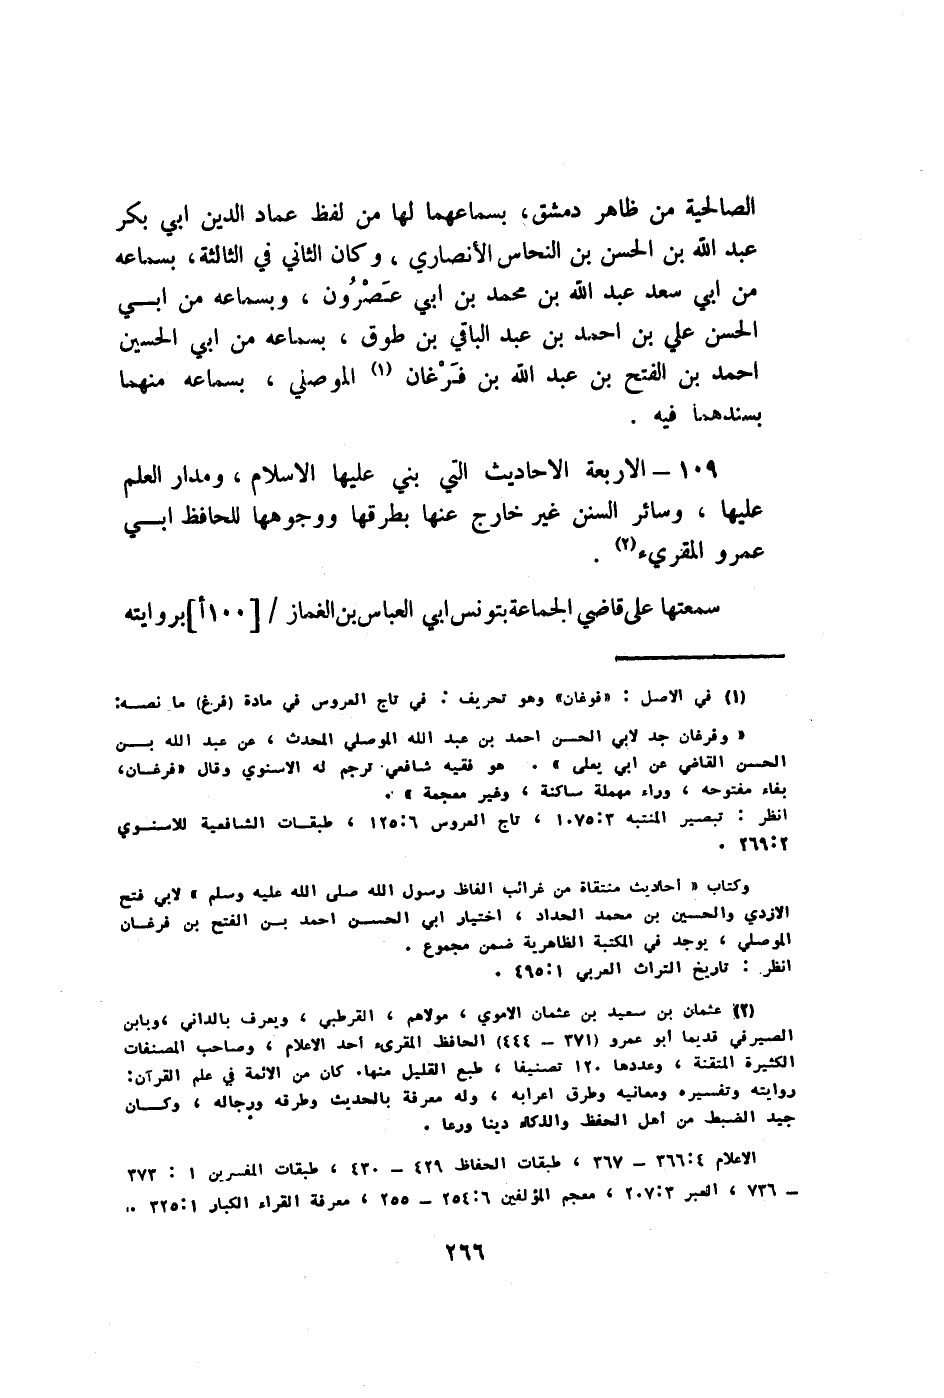 الصالحية من ظاهر دمشق، بسماعهما لها من لفظ عماد الدين ابي بكر
عبد الله بن الحسن بن النحاس الأنصاري ، وكان الثاني في الثالثة، بسماعه
من ابي سعد عبد الله بن محمد بن ابي عَصْرُون ، وبسماعه من ابــي
الحسن علي بن احمد بن عبد الباقي بن طوق ، بسماعه من ابي الحسين
احمد بن الفتح بن عبد الله بن فَرْغان (١) الموصلي ، بسماعه منهما
بسندهما فيه .
١٠٩ – الاربعة الاحاديث التي بني عليها الاسلام ، ومدار العلم
عليها ، وسائر السنن غير خارج عنها بطرقها ووجوهها للحافظ ابــي
عمرو المقريء(٢) .
سمعتها على قاضي الجماعة بتونس ابي العباس بن الغماز / [١٠٠أ] بروايته
(١) في الاصل : «فوغان» وهو تحريف : في تاج العروس في مادة (فرغ) ما نصــه:
« وفرغان جد لابي الحسن احمد بن عبد الله الموصلي المحدث ، عن عبد الله بــن
الحسن القاضي عن ابي يعلى » . هو فقيه شافعي ترجم له الاسنوي وقال «فرغــان،
بفاء مفتوحه ، وراء مهملة ساكنة ، وغير معجمة » .
انظر : تبصير المنتبه ٣:١٠٧٥ ، تاج العروس ٦:١٢٥ ، طبقــات الشافعية للاسنــوي
٢:٢٦٩ .
وكتاب « أحاديث منتقاة من غرائب الفاظ رسول الله صلى الله عليه وسلم » لابي فتح
الازدي والحسين بن محمد الحداد ، اختيار ابي الحســن احمد بــن الفتح بن فرغــان
الموصلي ، يوجد في المكتبة الظاهرية ضمن مجموع .
انظر : تاريخ التراث العربي ١:٤٩٥ .
(٢) عثمان بن سعيد بن عثمان الاموي ، مولاهم ، القرطبي ، ويعرف بالداني ،وبابن
الصيرفي قديما أبو عمرو (٣٧١ – ٤٤٤) الحافظ المقرىء أحد الاعلام ، وصاحب المصنفات
الكثيرة المتقنة ، وعددها ١٢٠ تصنيفا ، طبع القليل منها. كان من الائمة في علم القرآن:
روايته وتفسيره ومعانيه وطرق اعرابه ، وله معرفة بالحديث وطرقه ورجاله ، وكــان
جيد الضبط من أهل الحفظ والذكاء دينا ورعا .
الاعلام ٤:٣٦٦ – ٣٦٧ ، طبقات الحفاظ ٤٢٩ – ٤٣٠ ، طبقات المفسرين ١ : ٣٧٣
– ٧٣٦ ، العبر ٣:٢٠٧ ، معجم المؤلفين ٦:٢٥٤ – ٢٥٥ ، معرفة القراء الكبار ١:٣٢٥ ..
٢٦٦